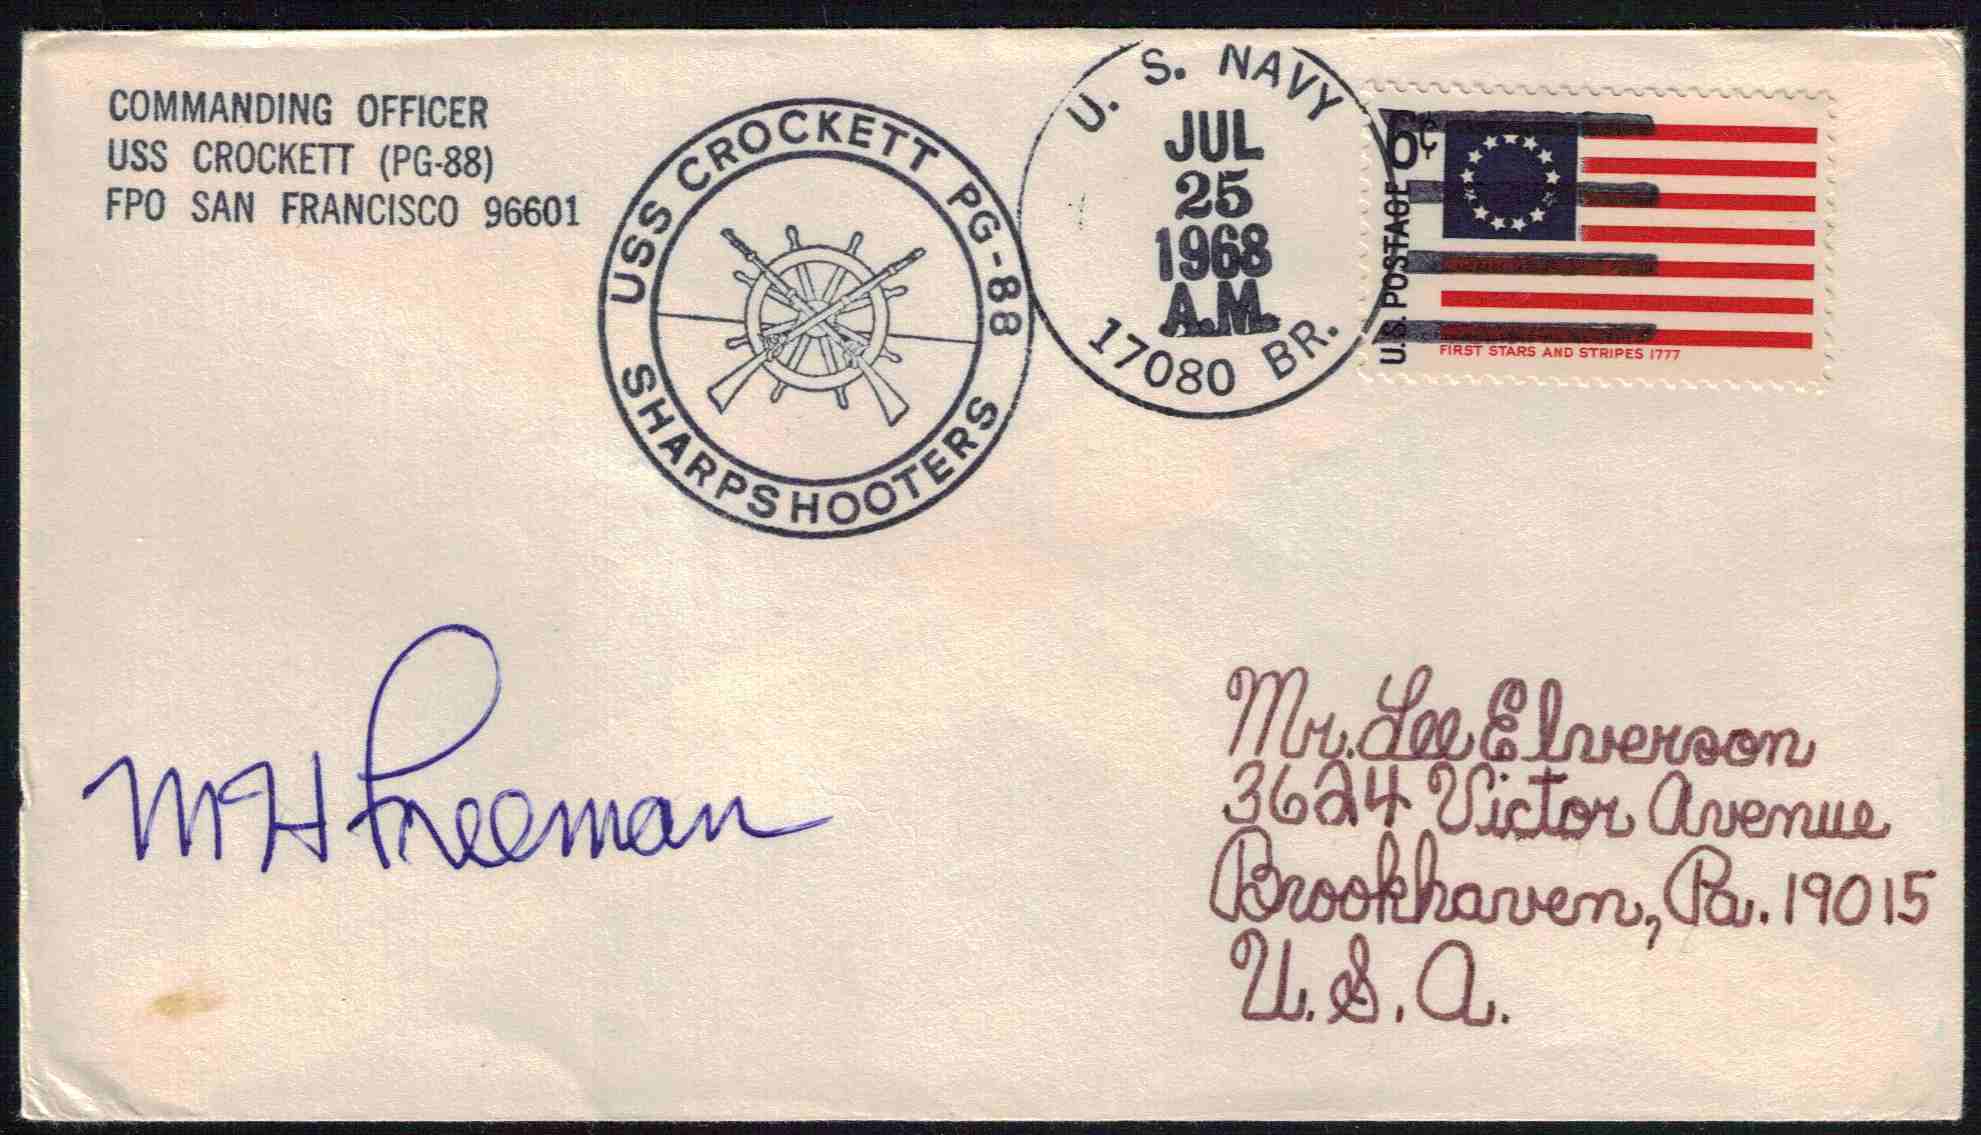 COMMANDING OFFICER
USS CROCKETT (PG-88)
FPO SAN FRANCISCO 96601
USS CROCKETT PG-88
SHARPSHOOTERS
U. S. NAVY
JUL
25
1968
A.M.
17080 BR.
6¢
U.S. POSTAGE
FIRST STARS AND STRIPES 1777
MH Freeman
Mr. Lee Elverson
3624 Victor Avenue
Brookhaven, Pa. 19015
U.S.A.